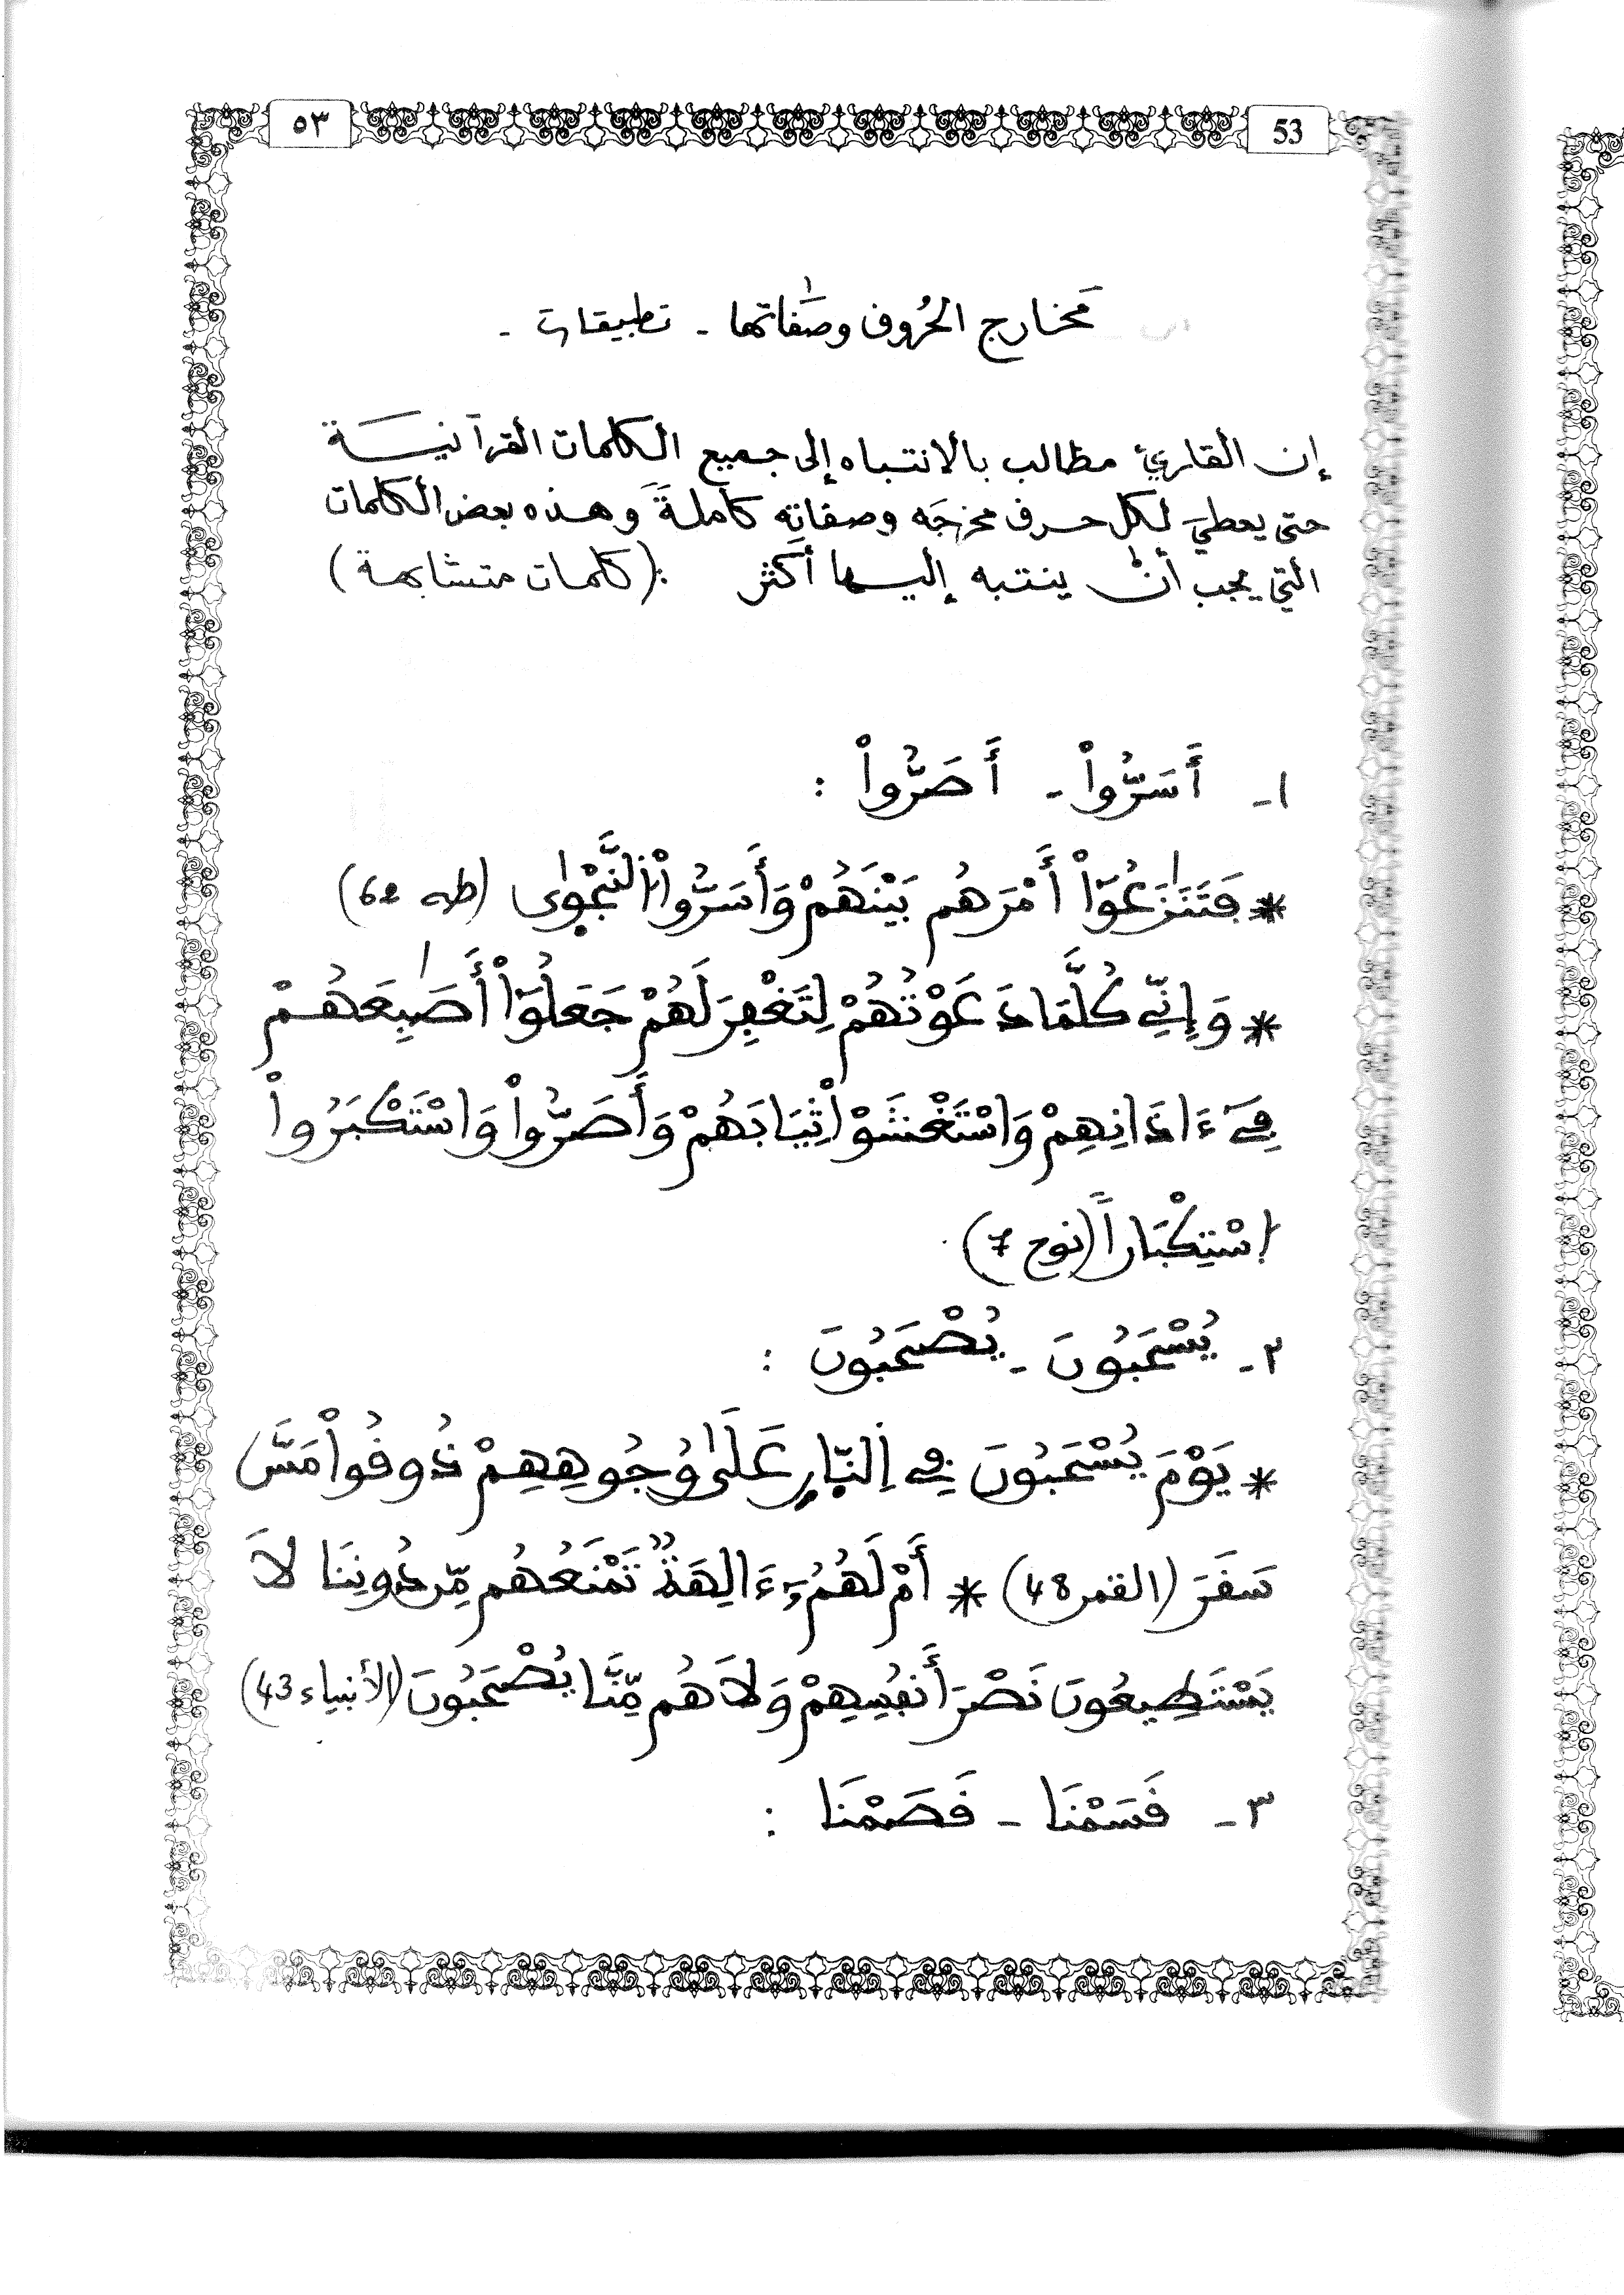 ٥٣
53
مَخارج الحُروف وصفَاتها - تطبيقات -
إن القارئ مطالب بالانتباه إلى جميع الكلمات القرآنية
حتى يعطيَ لكل حرف مخرجَه وصفاتِه كاملةً وهذه بعض الكلمات
التي يجب أنْ ينتبه إليها أكثر :(كلمات متشابهة)
١- أَسَرُّواْ - أَصَرُّواْ :
* فَتَنَٰزَعُوٓاْ أَمْرَهُم بَيْنَهُمْ وَأَسَرُّواْ اُلنَّجْوٰى (طه 62)
* وَإِنِّي كُلَّمَا دَعَوْتُهُمْ لِتَغْفِرَ لَهُمْ جَعَلُوٓاْ أَصَٰبِعَهُمْ
فِيٓ ءَاذَانِهِمْ وَاسْتَغْشَوْاْ ثِيَابَهُمْ وَأَصَرُّواْ وَاسْتَكْبَرُواْ
اِسْتِكْبَاراً (نوح 7)
٢- يُسْحَبُونَ - يُصْحَبُونَ :
* يَوْمَ يُسْحَبُونَ فِي اِلنّارِ عَلَىٰ وُجُوهِهِمْ ذُوقُواْ مَسَّ
سَقَرَ (القمر 48) * أَمْ لَهُمُۥٓ ءَالِهَةٌ تَمْنَعُهُم مِّن دُونِنَا لاَ
يَسْتَطِيعُونَ نَصْرَ أَنفُسِهِمْ وَلاَ هُم مِّنَّا يُصْحَبُونَ (الأنبياء 43)
٣- قَسَمْنَا - قَصَمْنَا :